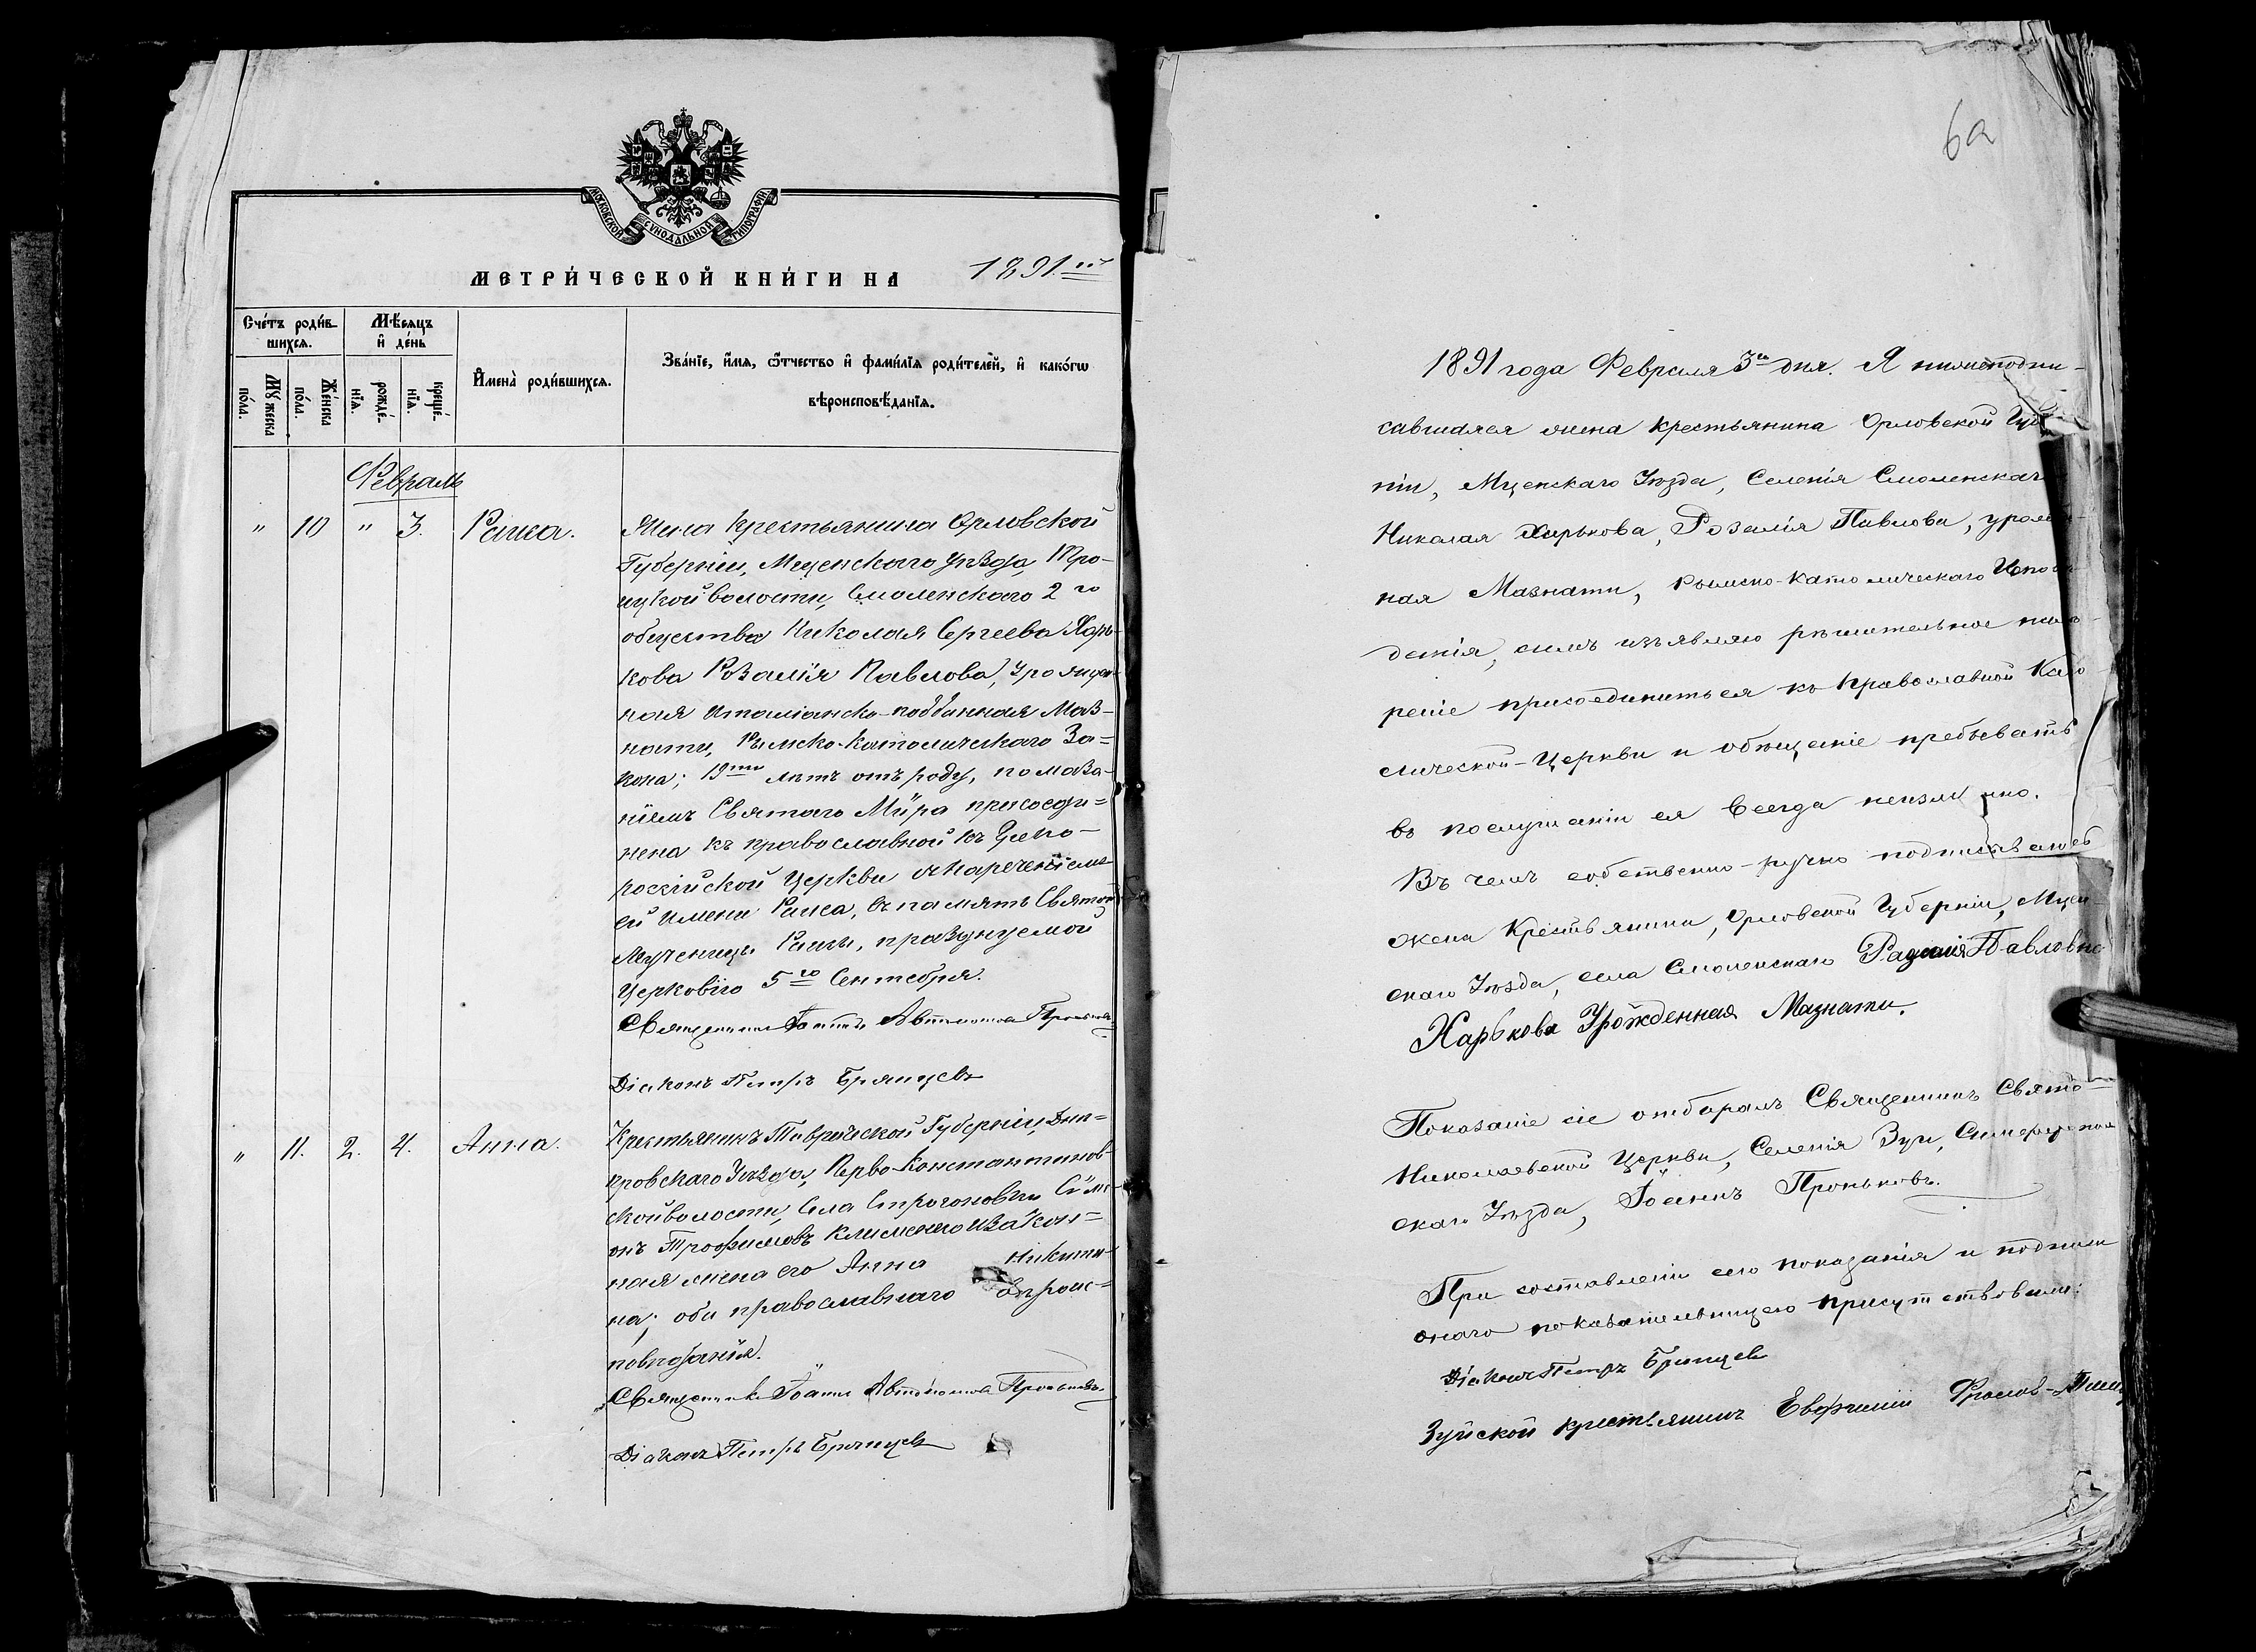 МОСКОВСКОЙ СУНОДАЛЬНОЙ ТИПОГРАФІИ
МЕТРИ́ЧЕСКОЙ КНИ́ГИ НА 1891.
Сче́тъ роди́в-
шихся.
Мѣ́сяцъ
и҆ де́нь
И҆мена̀ роди́вшихся.
Зва́нїе, и҆́мя, ѻ҆́тчество и҆ фами́лїя роди́телей, и҆ како́гѡ
вѣроисповѣ́данїя.
Мꙋ́жеска
по́ла.
Же́нска
по́ла.
рожде́-
нїя.
креще́-
нїя.
Февраль
" 10 " 3. Раиса.
Жена крестьянина Орловской
Губерніи, Мценскаго уѣзда, Тро-
ицкой волости, Смоленскаго 2го
общества Николая Сергеева Харь-
кова Розалія Павлова, урожден-
ная Италіанско-подданная Маз-
нати, Римско-Католическаго За=
кона; 19ти лѣтъ отъ роду, помаза-
ніемъ Святаго Мѵра присоеди=
нена къ православной къ Греко-
россійской Церкви съ нареченіемъ
ей имени Раиса, въ память Святой
Мученицы Раисы, празднуемой
Церковію 5го Сентября.
Священникъ Іоаннъ Автономовъ Проньковъ
Діаконъ Петръ Брянцевъ
" 11. 2. 4. Анна.
Крестьянинъ Таврической Губерніи, Днѣ=
провскаго Уѣзда, Перво-Константинов-
ской волости, Села Строгоновки Сим-
онъ Трофимовъ Клименко и закон=
ная жена его Анна Никити-
на; оба православнаго вѣроис=
повѣданія.
Священникъ Іоаннъ Автономовъ Проньковъ.
Діаконъ Петръ Брянцевъ
6а
1891 года Февраля 3го дня. Я нижеподпи-
савшаяся жена крестьянина Орловской Губ
ніи, Мценскаго Уѣзда, Селенія Смоленскаго
Николая Харькова, Розалія Павлова, урожден-
ная Мазнати, Римско-католическаго Исповѣ-
данія, симъ изъявляю рѣшительное намѣ-
реніе присоединиться къ Православной Като
лической-Церкви и обѣщаніе пребывать
въ послушаніи ея всегда неизмѣнно.
Въ чемъ собственно-ручно подписываюсь
жена Крестьянина, Орловской Губерніи, Мцен-
скаго Уѣзда, села Смоленскаго Разалія Павловна
Харькова Урожденная Мазнати.
Показаніе сіе отбиралъ Священникъ Свято-
Николаевской Церкви, Селенія Зуи, Симферополь
скаго Уѣзда, Іоаннъ Проньковъ.
При составленіи сего показанія и подписи
онаго показательницею присутствовали:
Діаконъ Петръ Брянцевъ
Зуйской крестьянинъ Евфимій Фроловъ